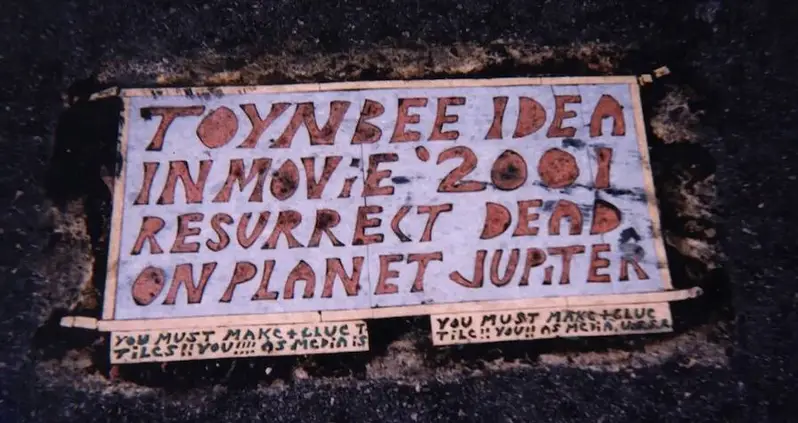 TOYNBEE IDEA
IN MOViE '2001
RESURRECT DEAD
ON PLANET JUPiTER
YOU MUST MAKE + GLUE T
TILES!! YOU!!!! AS MEDIA IS
YOU MUST MAKE + GLUE
TILE!! YOU!! AS MEDIA, U.S.S.R